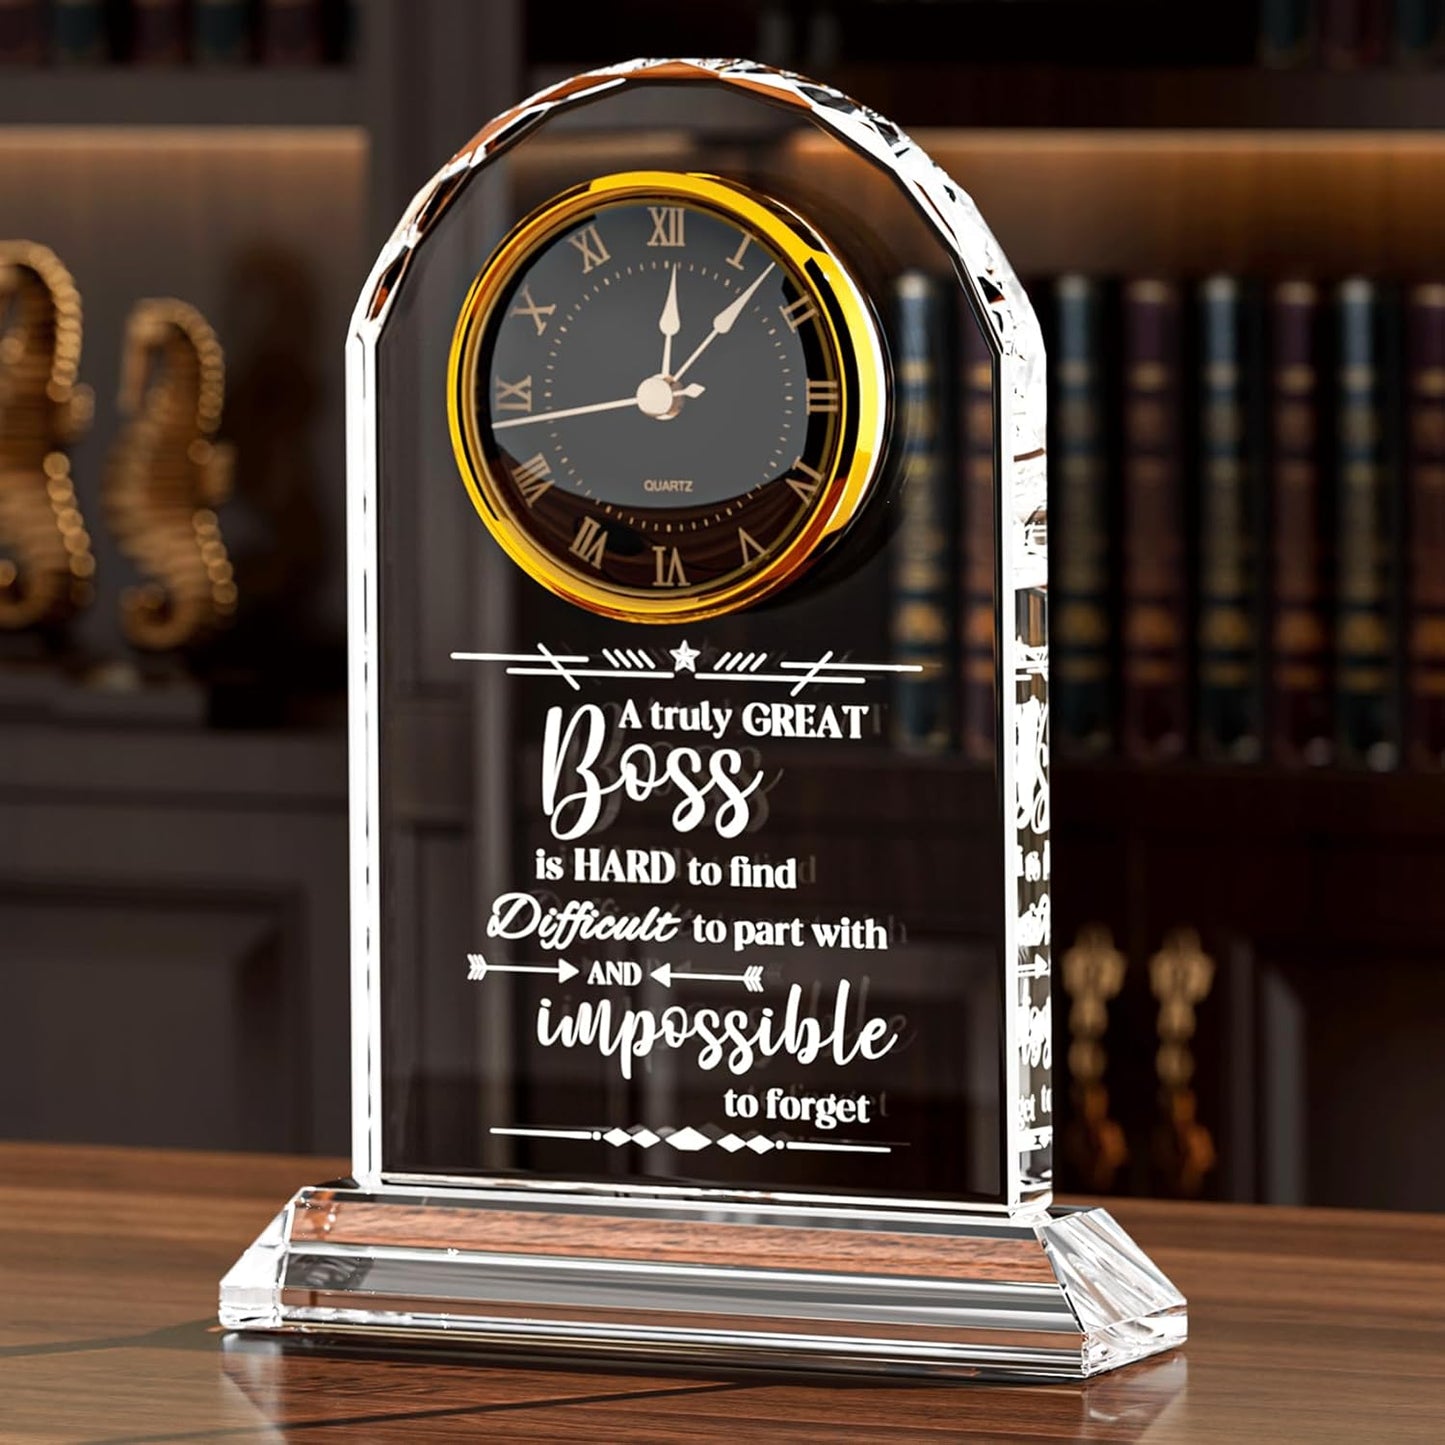 XII
I
II
III
IIII
V
VI
VII
VIII
IX
X
XI
QUARTZ
A truly GREAT
Boss
is HARD to find
Difficult to part with
AND
impossible
to forget